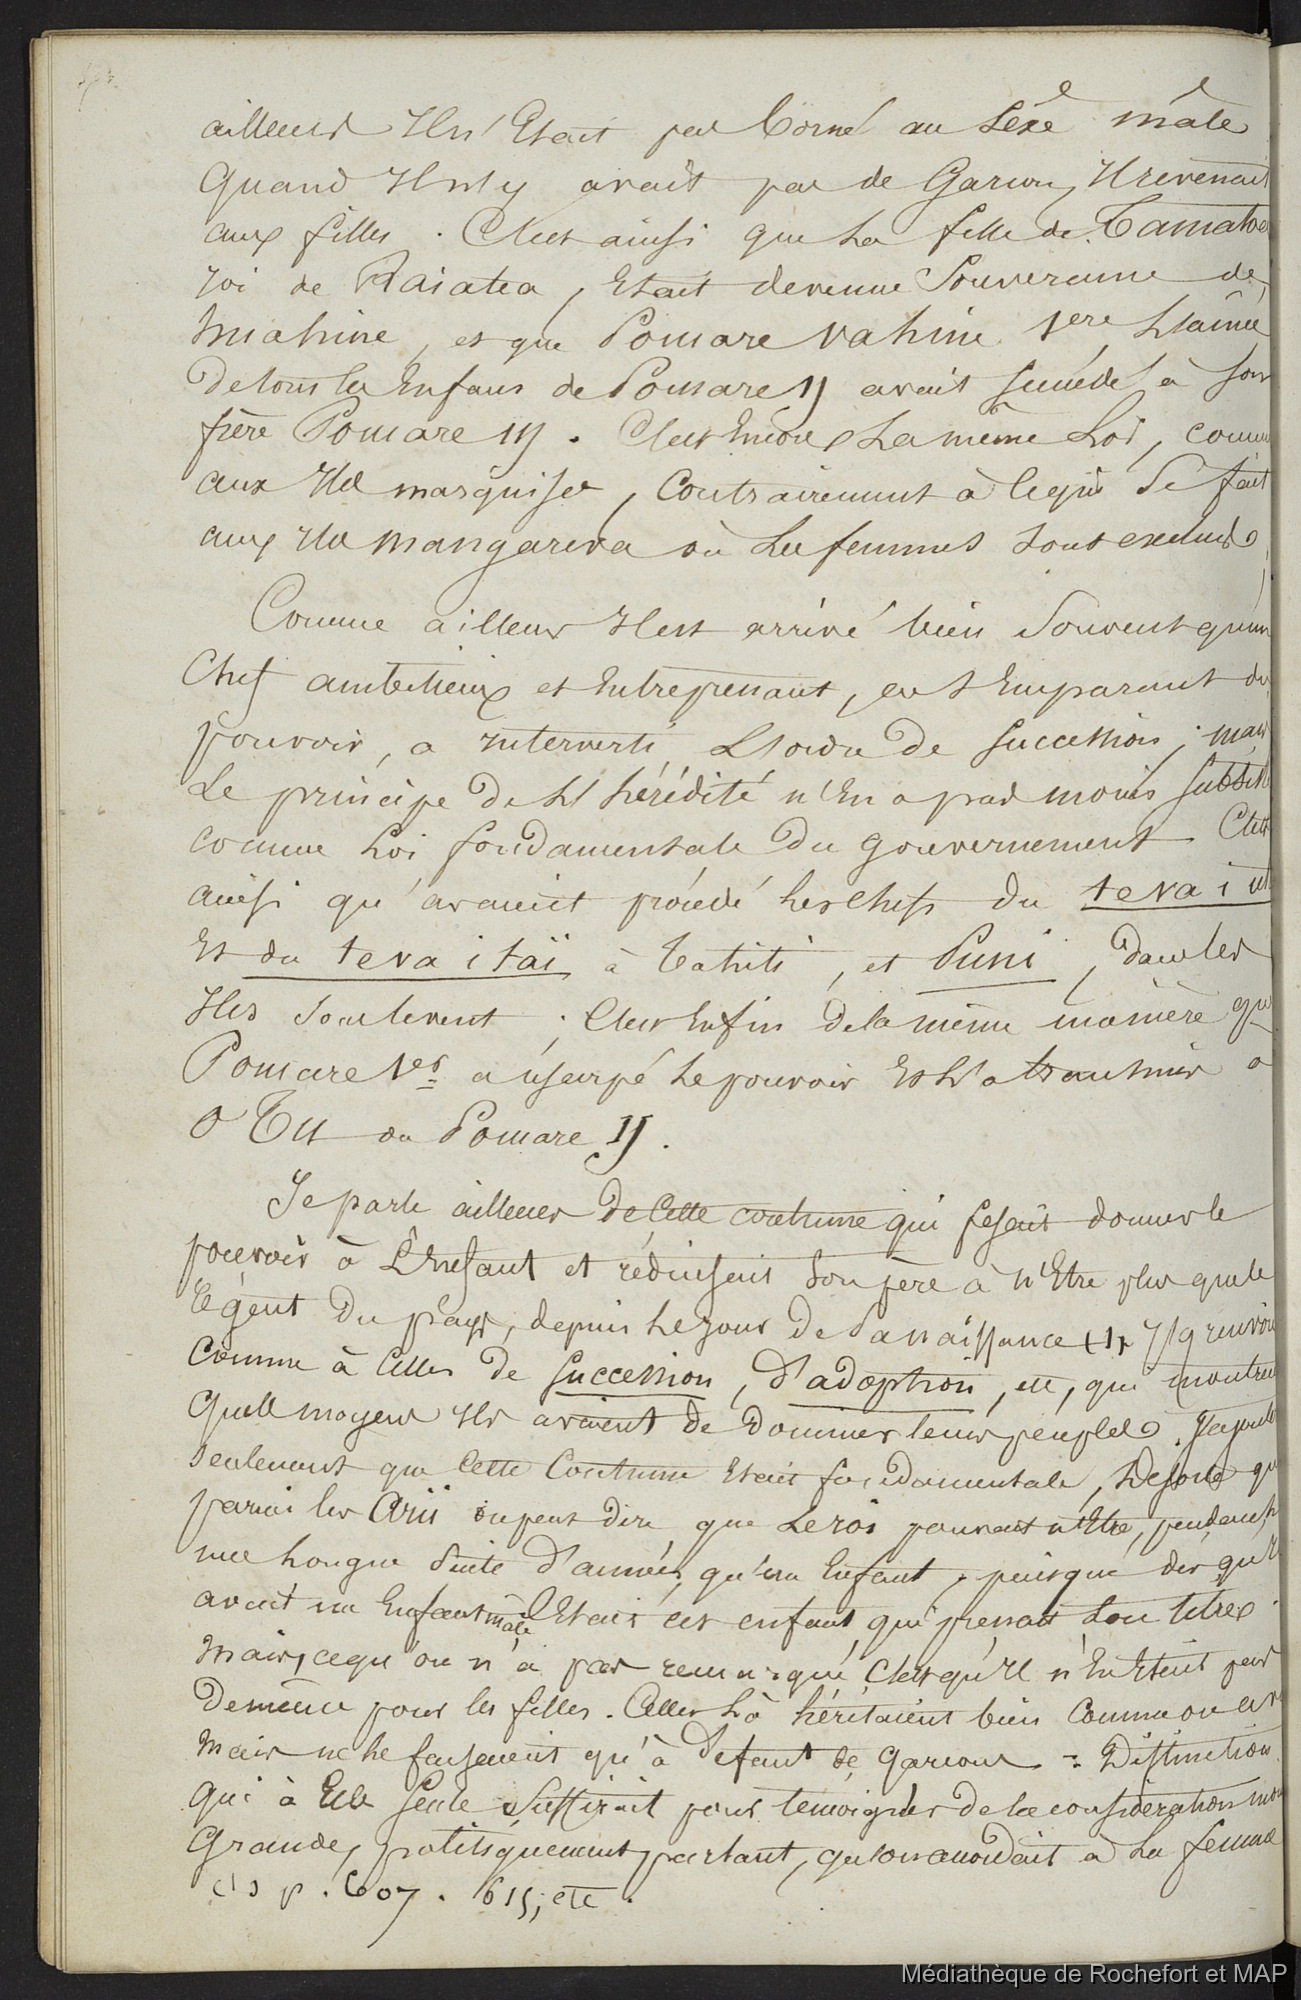 ailleurs Il n'Etait pas borné au Sexe mâle
Quand Il n'y avait pas de Garçon, Il revenait
aux filles. C'est ainsi que La fille de Tamatoa
roi de Raiatea, Etait devenue Souveraine de
huahine, et que Pomare vahine 1ere L'aînée
De tous les Enfans de Pomare II avait succédé à son
frère Pomare III. C'est Encore La même Loi, comme
aux Iles marquises, Contrairement à Ce qui Se fait
aux Iles Mangareva où Les femmes sont exclues,
Comme ailleurs Il est arrivé bien Souvent qu'un
Chef ambitieux et Entreprenant, en s'Emparant du
pouvoir, a Interverti L'ordre de succession; mais
Le principe De L'hérédité n'En a pas moins subsisté
comme Loi fondamentale Du gouvernement. C'est
ainsi qu'avaient procédé Les chefs du teva i uta
Et du teva i taï à Tahiti, et Puni, Dans les
Iles Soulevent; C'est Enfin De la même manière que
Pomare 1er a usurpé Le pouvoir Et L'a transmis à
O Tu ou Pomare II.
Je parle ailleurs De Cette coutume qui fesait donner le
pouvoir à L'Enfant et réduisait Son père à n'Etre plus que le
Régent Du pays, depuis Le jour De Sa naissance (1) J'y renvoie
Comme à Celles De succession, D'adoption, etc, qui montrent
Quels moyens Ils avaient de Dominer leurs peuples. J'ajoute
seulement que Cette Coutume Etait fondamentale, De sorte que
parmi les Arii on peut dire que Le roi pouvait n'Etre, pendant
une Longue Suite D'années, qu'un Enfant, puisque dès qu'Il
avait un Enfant mâle C'Etait cet enfant qui prenait Son titre.
Mais, ce qu'on n'a pas remarqué, C'est qu'Il n'En Etait pas
De même pour les filles. Celles Là héritaient bien Comme on a vu
Mais ne Le faisaient qu'à Défaut de Garçons = Distinction
Qui à Elle Seule Suffirait pour témoigner De la considération moins
Grande, politiquement parlant, qu'on accordait à La femme
(1) p. 607. 615, etc.
Médiathèque de Rochefort et MAP